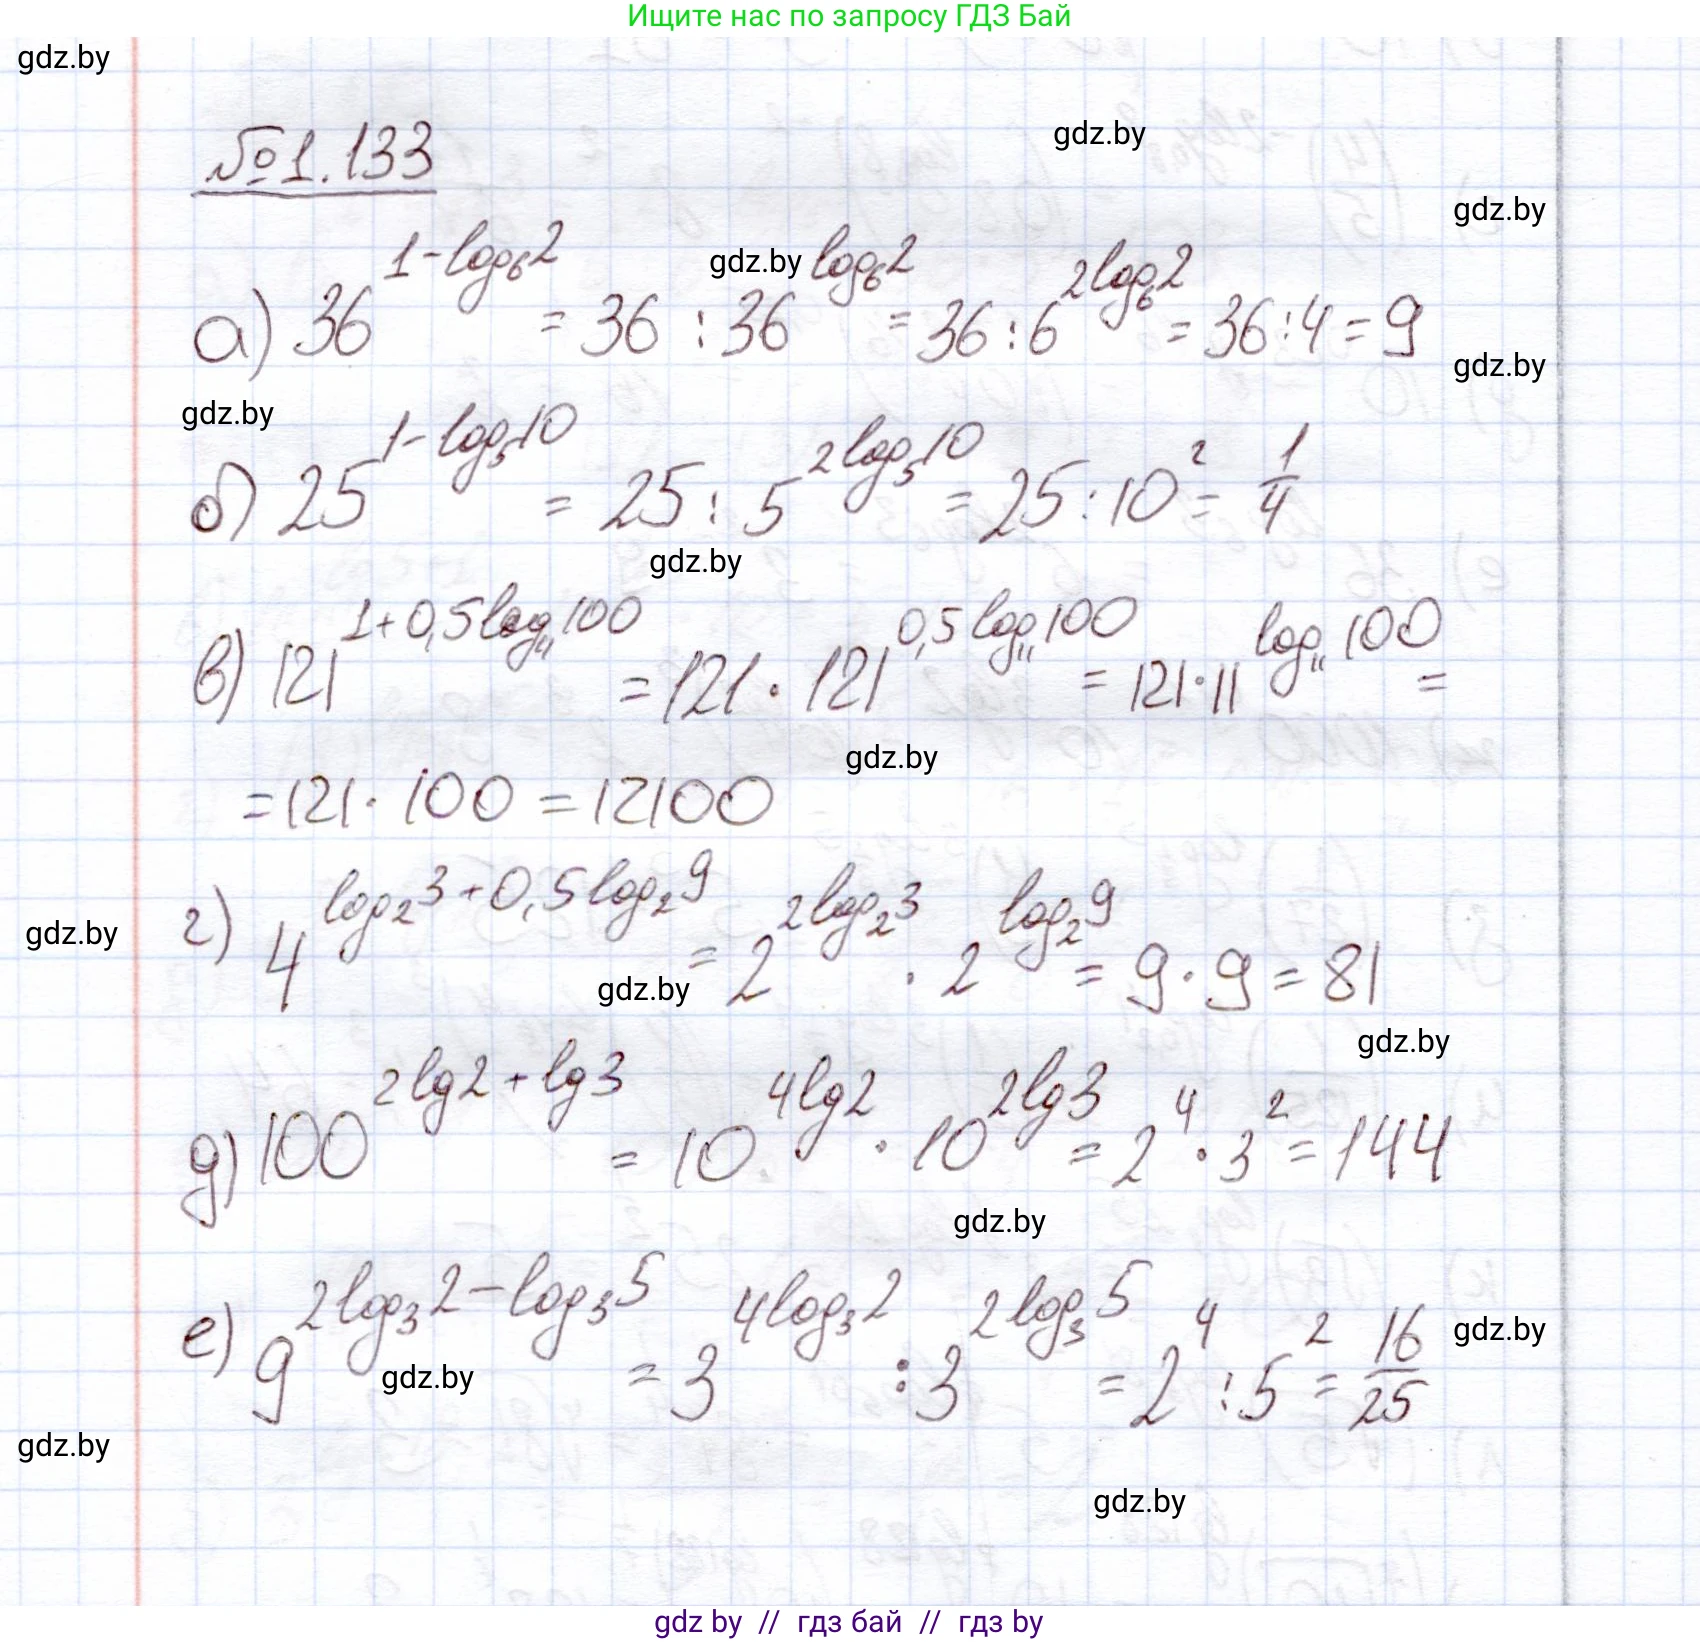 Ищите нас по запросу ГДЗ Бай
gdz.by
gdz.by
№1.133
gdz.by
а) 36^{1-log_6 2} = 36 : 36^{log_6 2} = 36 : 6^{2log_6 2} = 36 : 4 = 9
gdz.by
gdz.by
gdz.by
б) 25^{1-log_5 10} = 25 : 5^{2log_5 10} = 25 : 10^2 = \frac{1}{4}
gdz.by
в) 121^{1+0,5log_{11} 100} = 121 · 121^{0,5log_{11} 100} = 121 · 11^{log_{11} 100} =
gdz.by
= 121 · 100 = 12100
г) 4^{log_2 3+0,5log_2 9} = 2^{2log_2 3} · 2^{log_2 9} = 9 · 9 = 81
gdz.by
gdz.by
gdz.by
д) 100^{2lg2+lg3} = 10^{4lg2} · 10^{2lg3} = 2^4 · 3^2 = 144
gdz.by
е) 9^{2log_3 2-log_3 5} = 3^{4log_3 2} : 3^{2log_3 5} = 2^4 : 5^2 = \frac{16}{25}
gdz.by
gdz.by
gdz.by
gdz.by
gdz by // гдз бай // гдз by